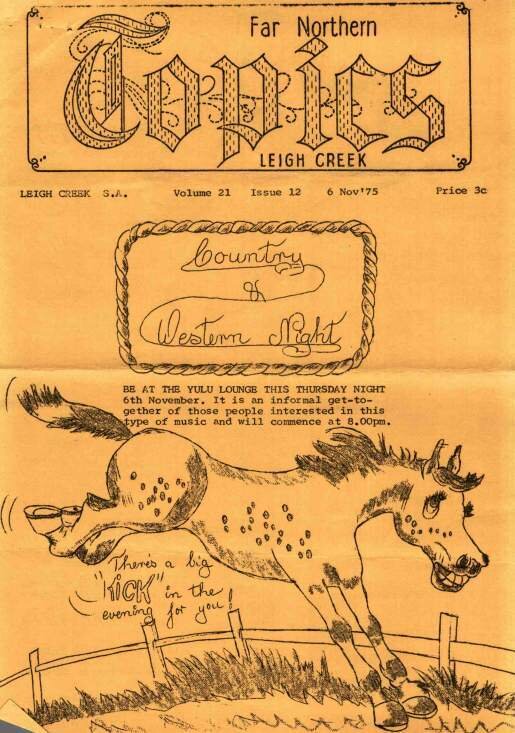 Far Northern
Topics
LEIGH CREEK
LEIGH CREEK S.A. Volume 21 Issue 12 6 Nov'75 Price 3c
Country
&
Western Night
BE AT THE YULU LOUNGE THIS THURSDAY NIGHT
6th November. It is an informal get-to-
gether of those people interested in this
type of music and will commence at 8.00pm.
There's a big
"KICK" in the
evening for you!